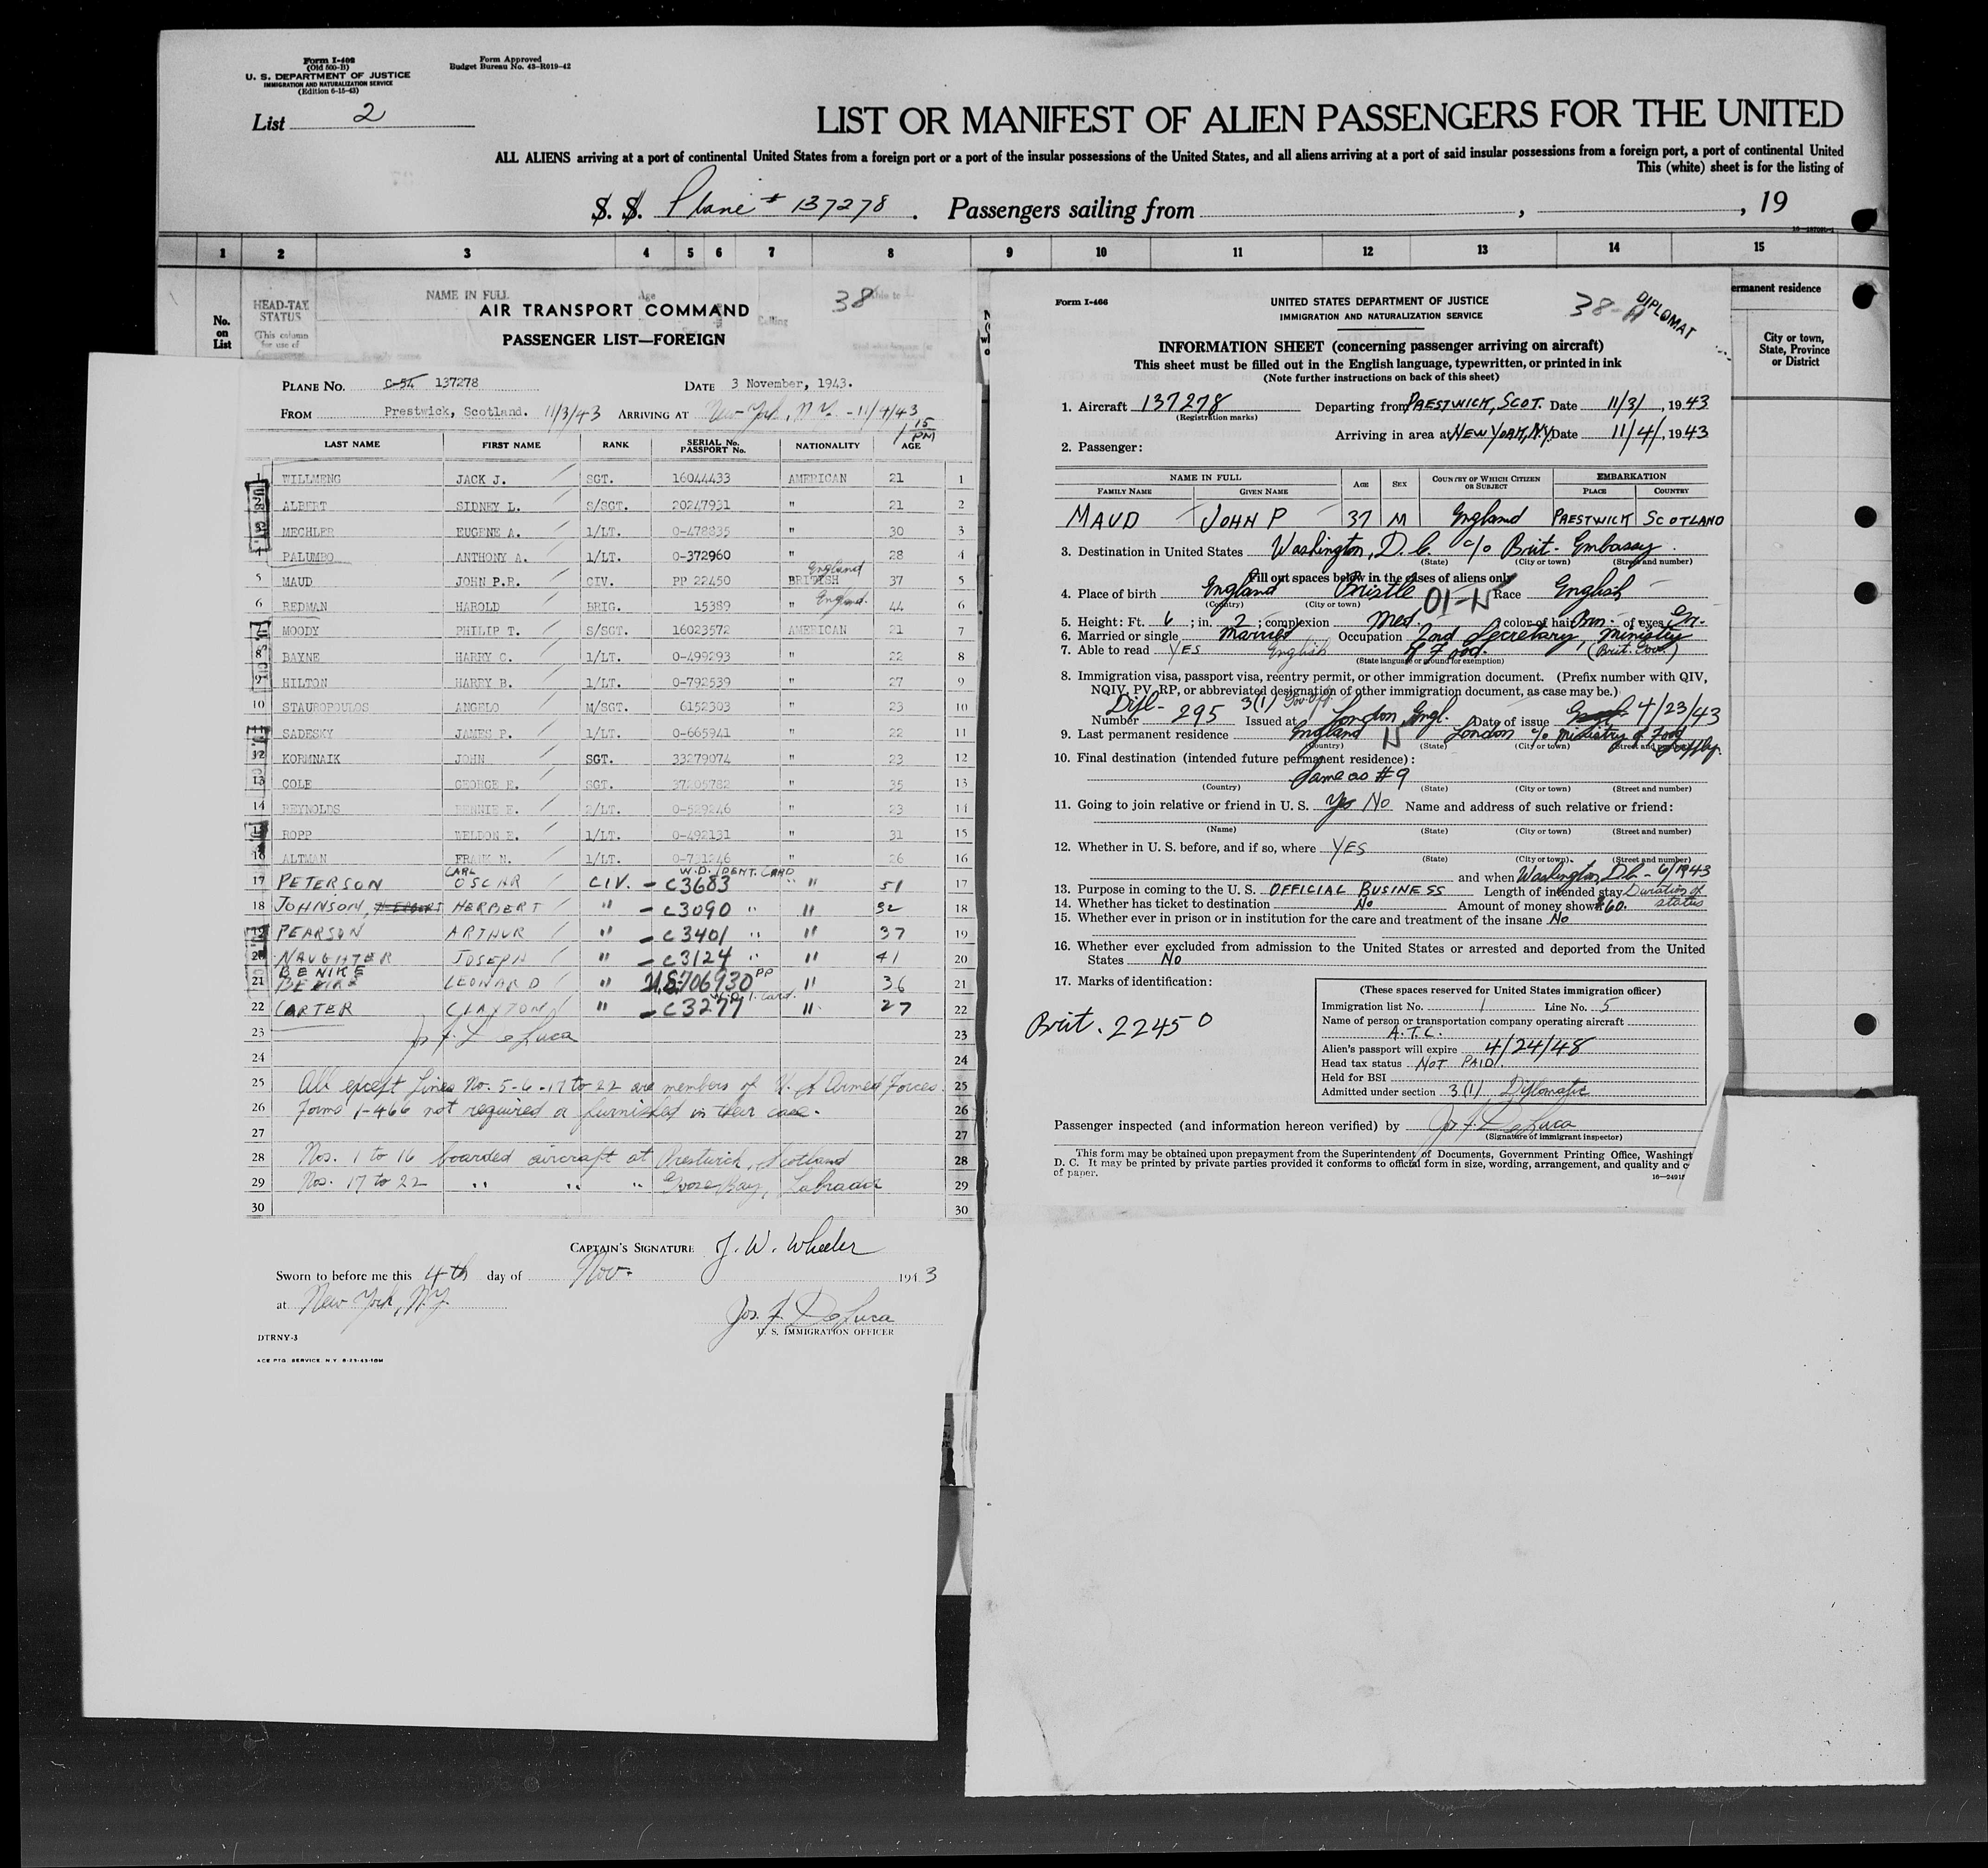 Form I-402
(Old 500-B)
U. S. DEPARTMENT OF JUSTICE
IMMIGRATION AND NATURALIZATION SERVICE
(Edition 6-15-43)
Form Approved
Budget Bureau No. 43-R019-42
List 2
LIST OR MANIFEST OF ALIEN PASSENGERS FOR THE UNITED
ALL ALIENS arriving at a port of continental United States from a foreign port or a port of the insular possessions of the United States, and all aliens arriving at a port of said insular possessions from a foreign port, a port of continental United
This (white) sheet is for the listing of
S. S. Plane # 137278 . Passengers sailing from , , 19
1 2 3 4 5 6 7 8 9 10 11 12 13 14 15
No. on List
HEAD-TAX STATUS
(This column for use of
NAME IN FULL
Age
Calling
38
AIR TRANSPORT COMMAND
PASSENGER LIST—FOREIGN
PLANE No. C-54 137278 DATE 3 November, 1943.
FROM Prestwick, Scotland. 11/3/43 ARRIVING AT New York, N.Y. - 11/4/43
1 15 PM
LAST NAME FIRST NAME RANK SERIAL No. PASSPORT No. NATIONALITY AGE
1 WILLMENG JACK J. SGT. 16044433 AMERICAN 21 1
2 ALBERT SIDNEY L. S/SGT. 20247931 " 21 2
MECHLER EUGENE A. 1/LT. 0-478835 " 30 3
4 PALUMBO ANTHONY A. 1/LT. 0-372960 " 28 4
5 MAUD JOHN P.R. CIV. PP 22450 BRITISH England 37 5
6 REDMAN HAROLD BRIG. 15389 " England. 44 6
7 MOODY PHILIP T. S/SGT. 16023572 AMERICAN 21 7
8 BAYNE HARRY C. 1/LT. 0-499293 " 22 8
9 HILTON HARRY B. 1/LT. 0-792539 " 27 9
10 STAUROPOULOS ANGELO M/SGT. 6152303 " 23 10
11 SADESKY JAMES P. 1/LT. 0-665941 " 22 11
12 KORMNAIK JOHN SGT. 33279074 " 23 12
13 COLE GEORGE E. SGT. 37205782 " 35 13
14 REYNOLDS BENNIE E. 2/LT. 0-529246 " 23 14
15 ROPP WELDON E. 1/LT. 0-492131 " 31 15
16 ALTMAN FRANK N. 1/LT. 0-791246 " 26 16
17 PETERSON CARL OSCAR CIV. - C3683 W.D. IDENT. CARD " " 51 17
18 JOHNSON, HERBERT HERBERT " - C3090 " " 32 18
19 PEARSON ARTHUR " - C3401 " " 37 19
20 NAUGHTER JOSEPH " - C3124 " " 41 20
21 BENIKE LEONARD " U.S. 706930 PP " 36 21
22 CARTER CLAYTON " - C3277 W.D. I. Card. " 27 22
23 Jos F. DeLuca 23
24 24
25 All except lines No. 5-6-17 to 22 are members of U. S Armed Forces. 25
26 Forms I-466 not required or furnished in their case. 26
27 27
28 Nos. 1 to 16 boarded aircraft at Prestwick, Scotland 28
29 Nos. 17 to 22 " " " Goose Bay, Labrador 29
30 30
CAPTAIN'S SIGNATURE J. W. Wheeler
Sworn to before me this 4th day of Nov. 1943
at New York, N.Y.
Jos. F. DeLuca
U. S. IMMIGRATION OFFICER
DTRNY-3
ACE PTG. SERVICE N.Y. 8-23-43-10M
Form I-466
UNITED STATES DEPARTMENT OF JUSTICE
IMMIGRATION AND NATURALIZATION SERVICE
38-A DIPLOMAT
INFORMATION SHEET (concerning passenger arriving on aircraft)
This sheet must be filled out in the English language, typewritten, or printed in ink
(Note further instructions on back of this sheet)
1. Aircraft 137278 Departing from PRESTWICK, SCOT. Date 11/3/, 1943
(Registration marks)
Arriving in area at NEW YORK, N.Y. Date 11/4/, 1943
2. Passenger:
NAME IN FULL AGE SEX COUNTRY OF WHICH CITIZEN OR SUBJECT EMBARKATION
FAMILY NAME GIVEN NAME PLACE COUNTRY
MAUD JOHN P 37 M England PRESTWICK SCOTLAND
3. Destination in United States Washington, D.C. c/o Brit. Embassy.
(State) (City or town) (Street and number)
Fill out spaces below in the cases of aliens only
4. Place of birth England Bristle 01-N Race English
(Country) (City or town)
5. Height: Ft. 6 ; in. 2 ; complexion Med. color of hair Brn. of eyes Gr.
6. Married or single Married Occupation 2nd Secretary, Ministry of Food.
7. Able to read YES English (Brit. Gov.)
(State language or ground for exemption)
8. Immigration visa, passport visa, reentry permit, or other immigration document. (Prefix number with QIV,
NQIV, PV, RP, or abbreviated designation of other immigration document, as case may be.)
Dipl- 3(1) Gov. Off.
Number 295 Issued at London, Engl. Date of issue 4/23/43
9. Last permanent residence England N London c/o Ministry of Food Supply.
(Country) (State) (City or town) (Street and number)
10. Final destination (intended future permanent residence):
Same as #9
(Country) (State) (City or town) (Street and number)
11. Going to join relative or friend in U. S. Yes No Name and address of such relative or friend:
(Name) (State) (City or town) (Street and number)
12. Whether in U. S. before, and if so, where YES
(State) (City or town) (Street and number)
and when Washington, D.C. - 6/1943
13. Purpose in coming to the U. S. OFFICIAL BUSINESS Length of intended stay Duration of status
14. Whether has ticket to destination No Amount of money shown $60.
15. Whether ever in prison or in institution for the care and treatment of the insane No
16. Whether ever excluded from admission to the United States or arrested and deported from the United
States No
17. Marks of identification:
Brit. 22450
(These spaces reserved for United States immigration officer)
Immigration list No. 1 Line No. 5
Name of person or transportation company operating aircraft
A.T.C.
Alien's passport will expire 4/24/48
Head tax status NOT PAID.
Held for BSI
Admitted under section 3(1), Diplomatic
Passenger inspected (and information hereon verified) by Jos F. DeLuca
(Signature of immigrant inspector)
This form may be obtained upon prepayment from the Superintendent of Documents, Government Printing Office, Washingt
D. C. It may be printed by private parties provided it conforms to official form in size, wording, arrangement, and quality and c
of paper.
16-2491
ermanent residence
City or town, State, Province or District